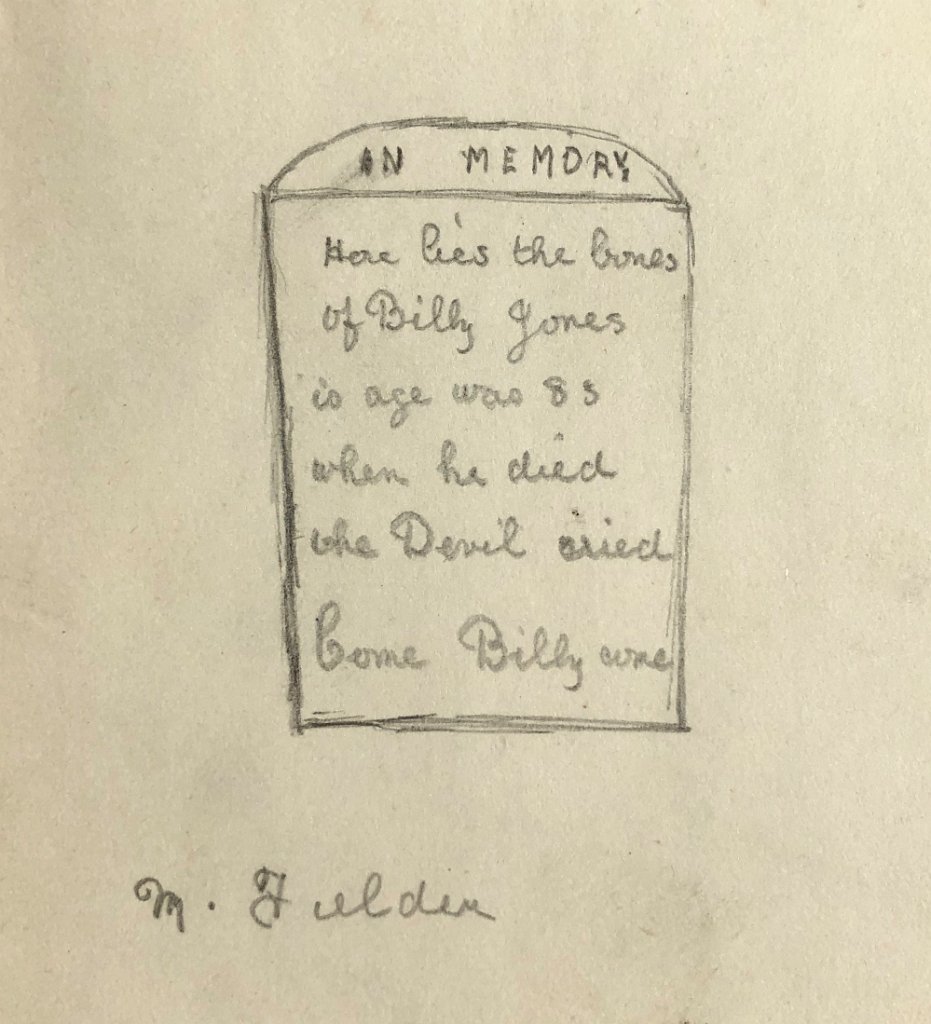 IN MEMORY
Here lies the bones
of Billy Jones
is age was 83
when he died
the Devil cried
Come Billy come
M. Fielden